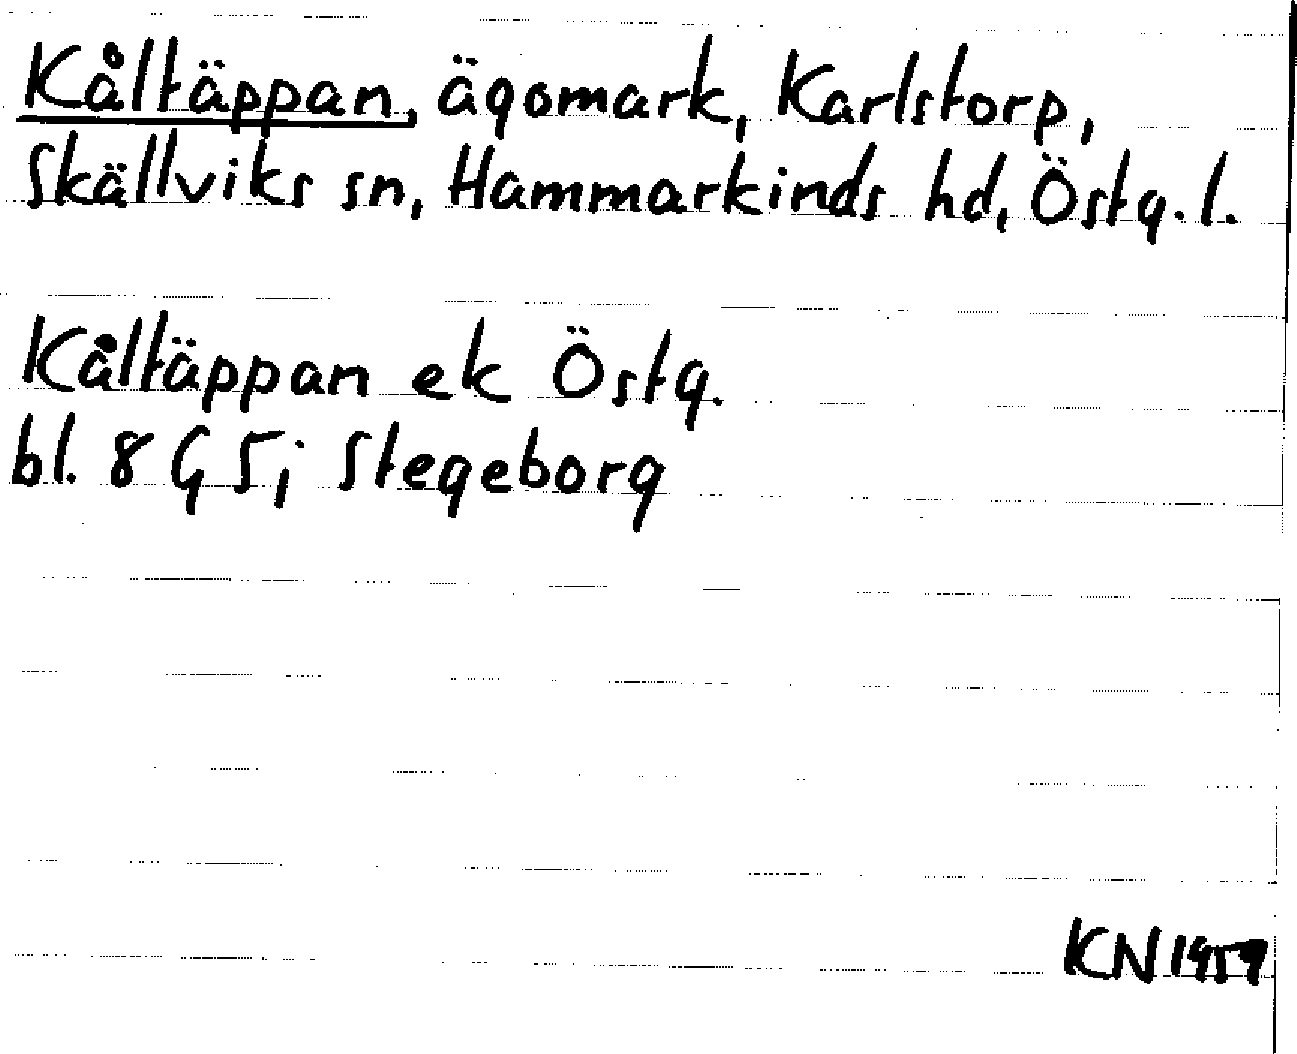 Kåltäppan, ägomark, Karlstorp,
Skällviks sn, Hammarkinds hd, Östg. l.
Kåltäppan ek Östg.
bl. 8 G 5 i Stegeborg
KN 1959